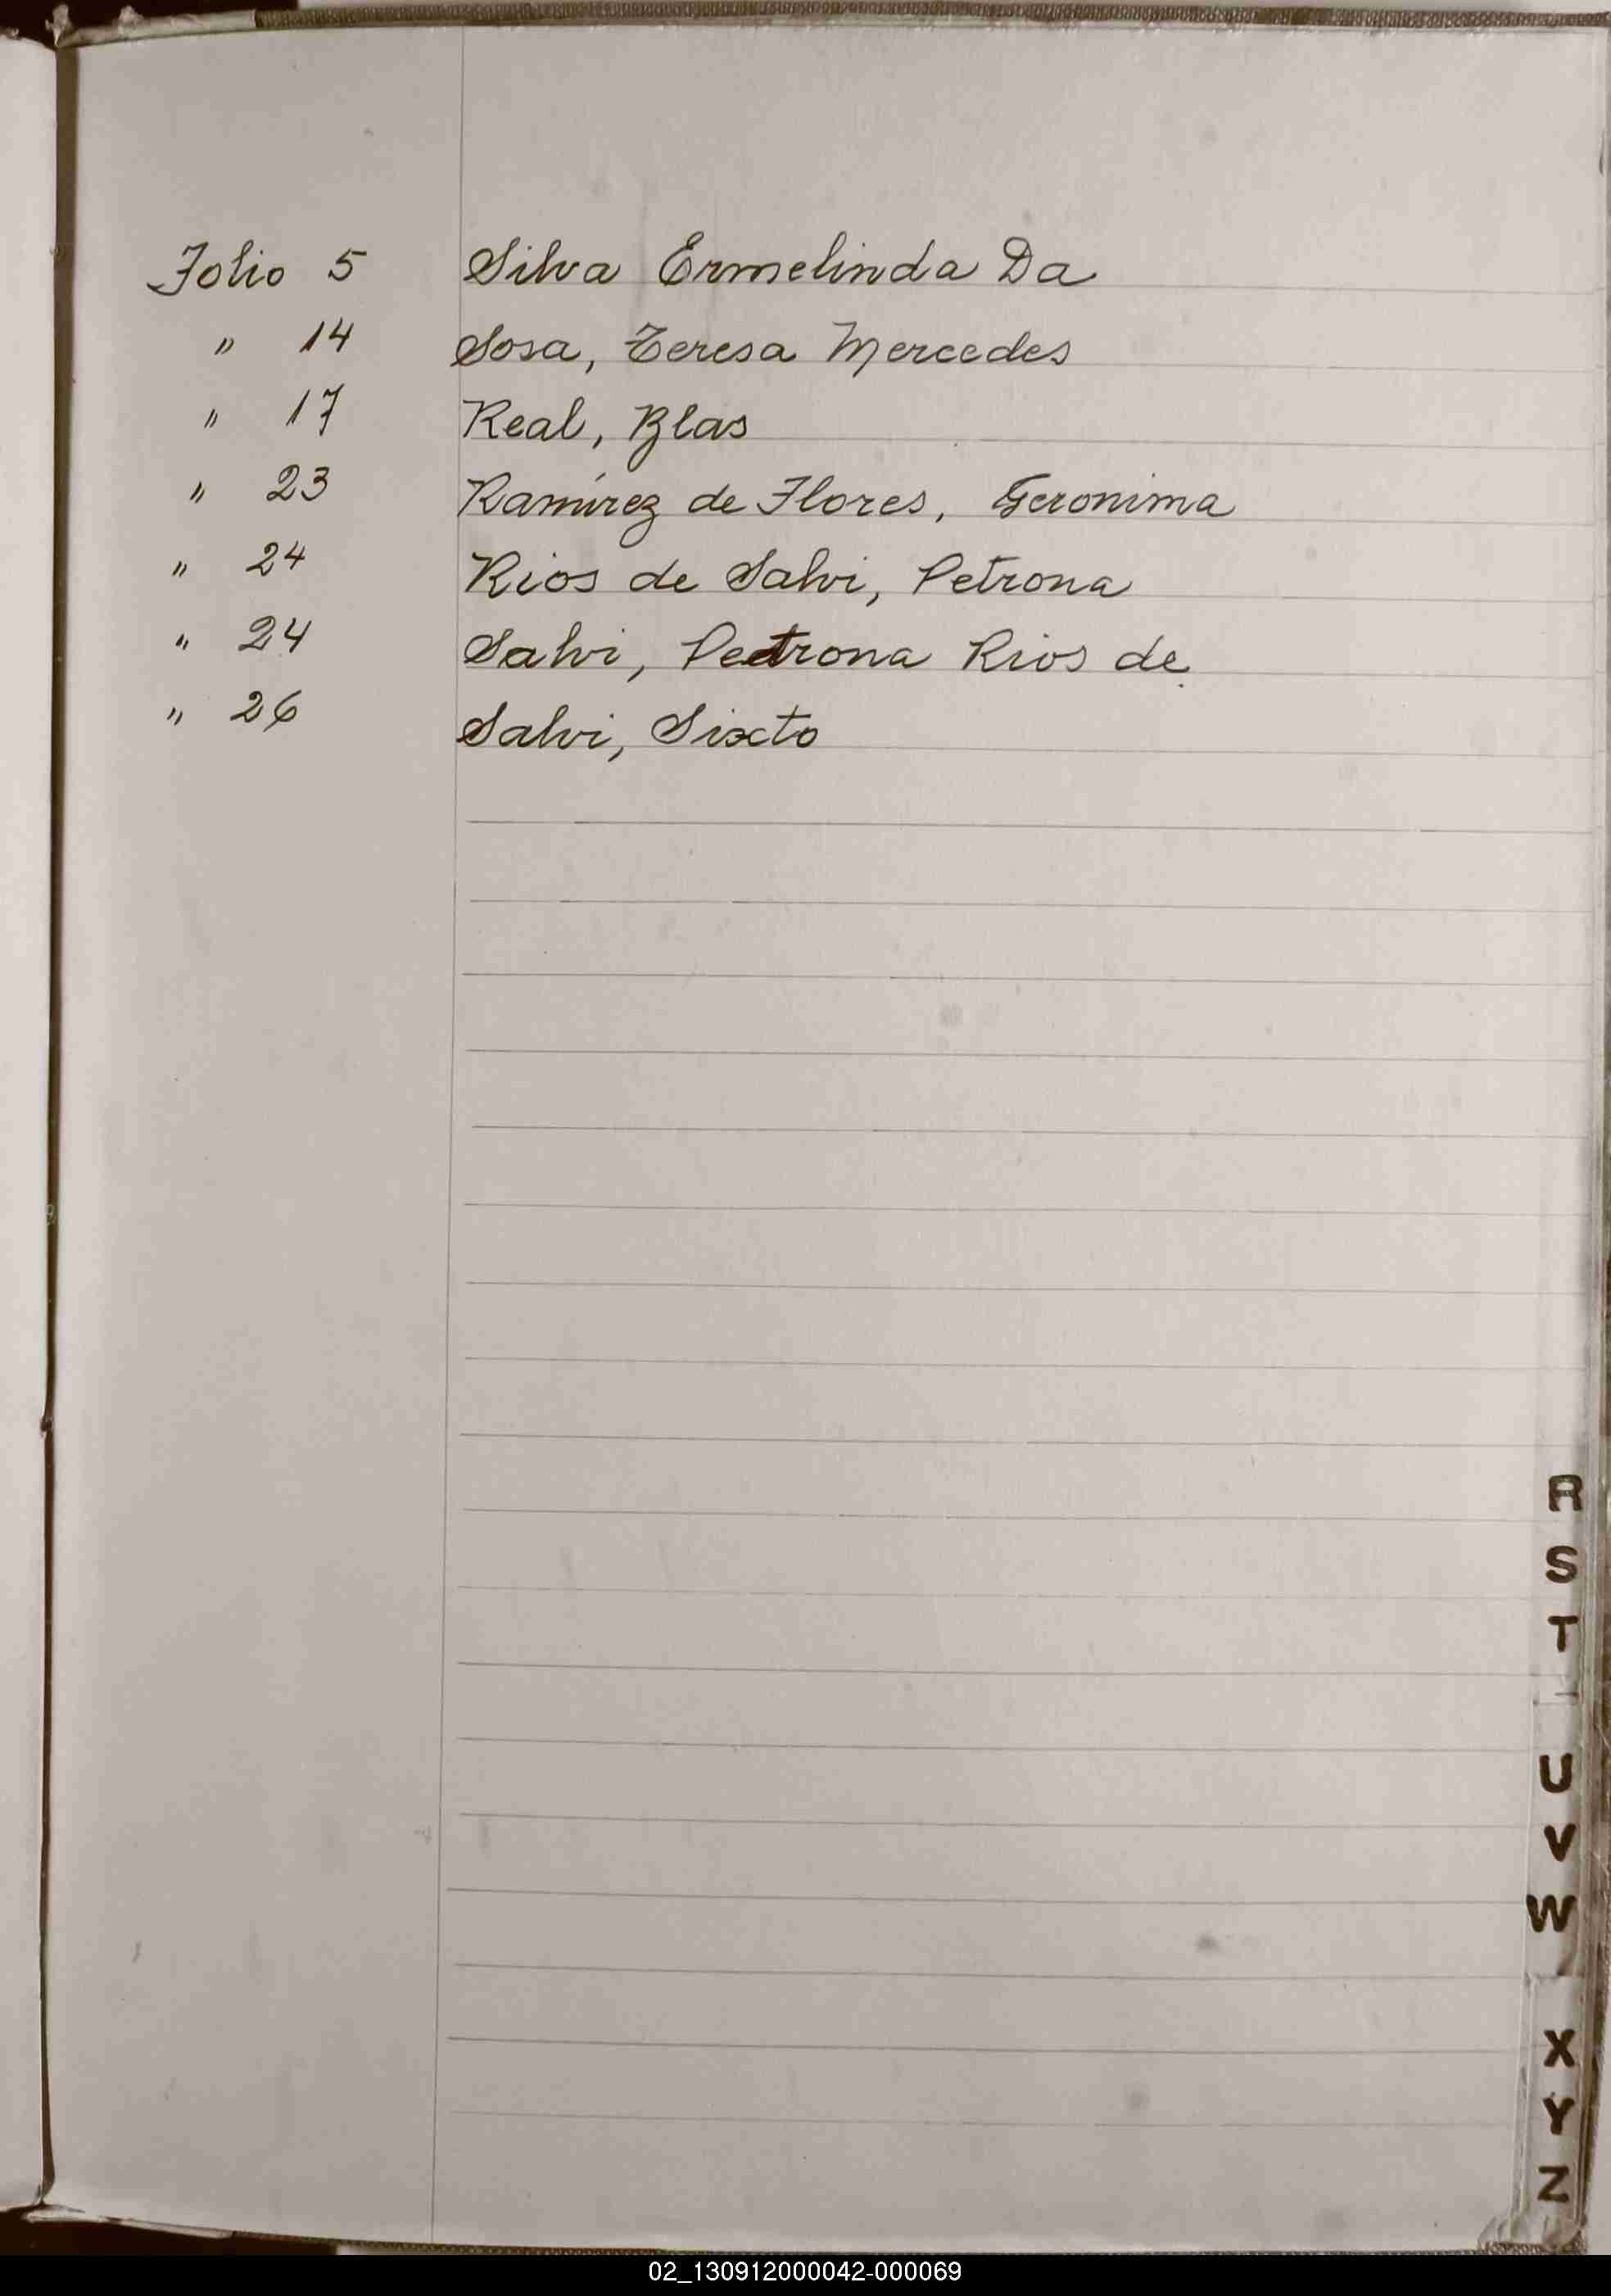 Folio 5 Silva Ermelinda Da
" 14 Sosa, Teresa Mercedes
" 17 Real, Blas
" 23 Ramírez de Flores, Geronima
" 24 Rios de Salvi, Petrona
" 24 Salvi, Petrona Rios de
" 26 Salvi, Sixto
R
S
T
U
V
W
X
Y
Z
02_130912000042-000069